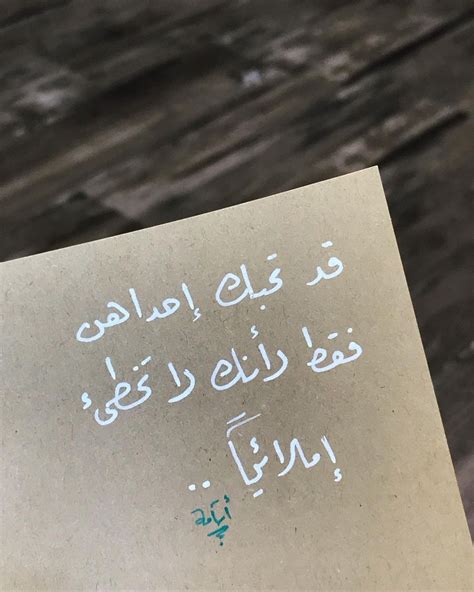 قد تحبك إحداهن
فقط لأنك لا تخطئ
إملائياً ..